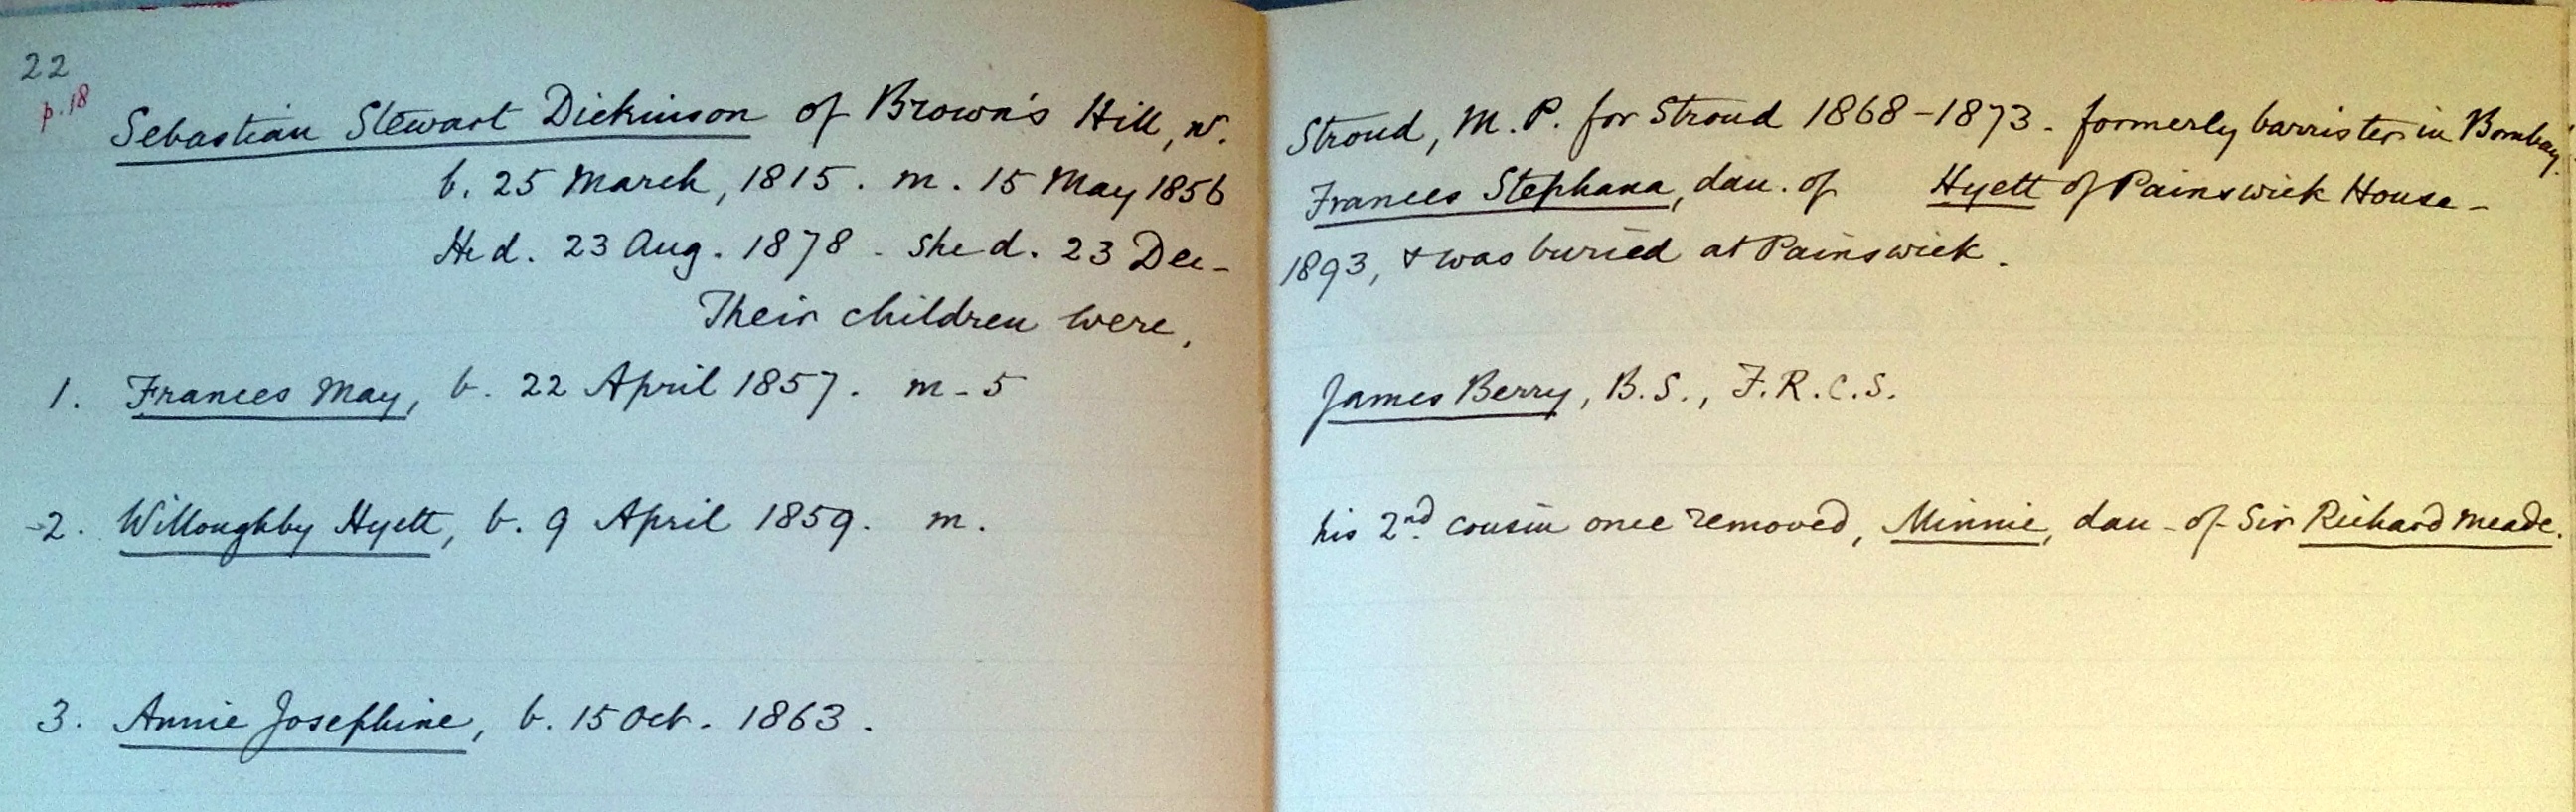 22
p.18
Sebastian Stewart Dickinson of Brown's Hill, nr. Stroud, M.P. for Stroud 1868-1873. formerly barrister in Bombay.
b. 25 March, 1815. m. 15 May 1856 Frances Stephana, dau. of Hyett of Painswick House-
He d. 23 Aug. 1878 - She d. 23 Dec- 1893, & was buried at Painswick.
Their children were,
1. Frances May, b. 22 April 1857. m-5 James Berry, B.S., F.R.C.S.
2. Willoughby Hyett, b. 9 April 1859. m. his 2nd cousin once removed, Minnie, dau-of-Sir Richard Meade.
3. Annie Josephine, b. 15 Oct. 1863.